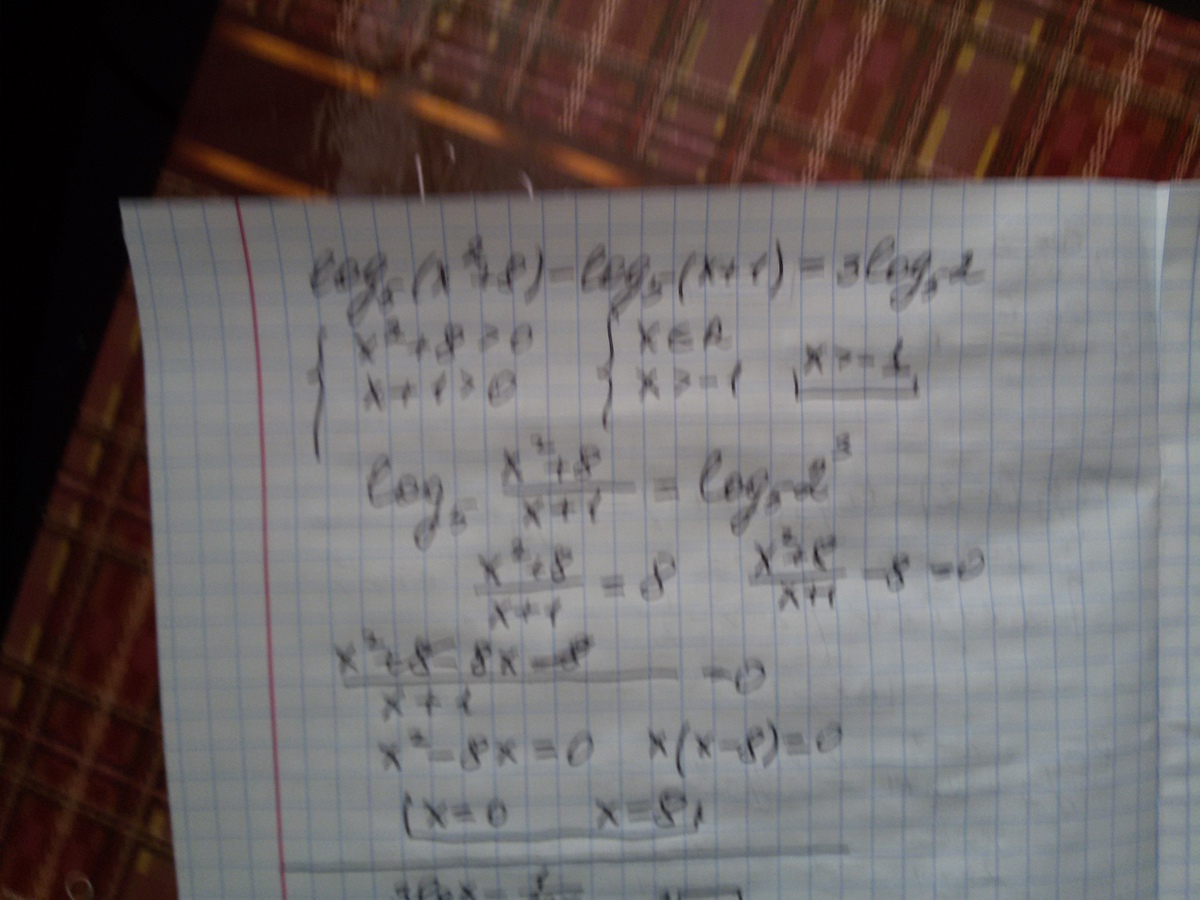 log₅(x²+8) - log₅(x+1) = 3log₅2
{ x²+8>0 { x∈R
x+1>0 x>-1 x>-1
log₅ (x²+8)/(x+1) = log₅2³
(x²+8)/(x+1) = 8 (x²+8)/(x+1) - 8 = 0
(x²+8-8x-8)/(x+1) = 0
x²-8x=0 x(x-8)=0
x=0 x=8